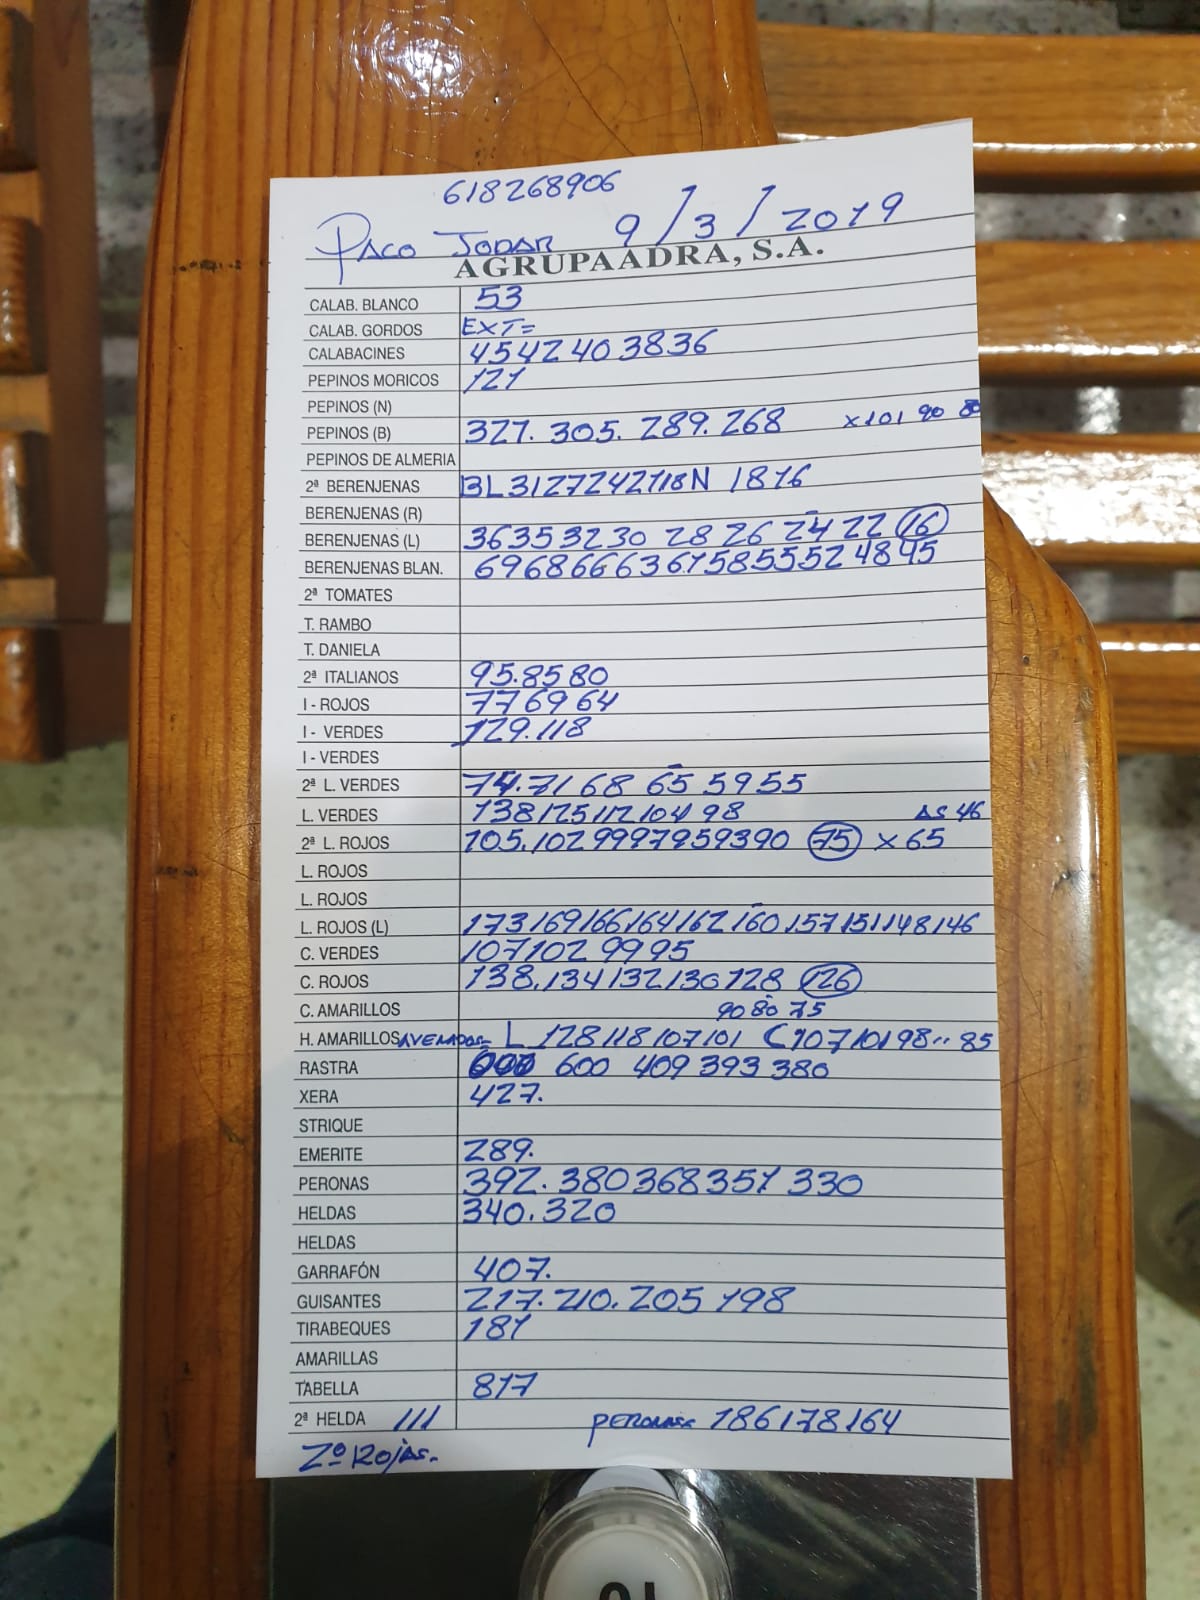 618268906
PACO JODAR 9/3/2019
AGRUPAADRA, S.A.
CALAB. BLANCO 53
CALAB. GORDOS EXT=
CALABACINES 4542403836
PEPINOS MORICOS 121
PEPINOS (N)
PEPINOS (B) 327. 305. 289. 268 x101 90 80
PEPINOS DE ALMERIA
2ª BERENJENAS BL3127242118N 1816
BERENJENAS (R)
BERENJENAS (L) 36353230 28 26 24 22 16
BERENJENAS BLAN. 69686663615855524845
2ª TOMATES
T. RAMBO
T. DANIELA
2ª ITALIANOS 95.8580
I - ROJOS 776964
I - VERDES 129.118
I - VERDES
2ª L. VERDES 74.7168 65 5955
L. VERDES 13812511210498 AS 46
2ª L. ROJOS 105.1029997959390 75 x 65
L. ROJOS
L. ROJOS
L. ROJOS (L) 173169166164162160157151148146
C. VERDES 1071029995
C. ROJOS 138.134132130128 126
C. AMARILLOS 90 80 75
H. AMARILLOS L 128118107101 C10710198.. 85
RASTRA 600 409 393 380
XERA 427.
STRIQUE
EMERITE 289.
PERONAS 392. 380368351 330
HELDAS 340.320
HELDAS
GARRAFÓN 407.
GUISANTES 217. 210. 205 198
TIRABEQUES 181
AMARILLAS
TABELLA 817
2ª HELDA 111 186178164
2º ROJAS.